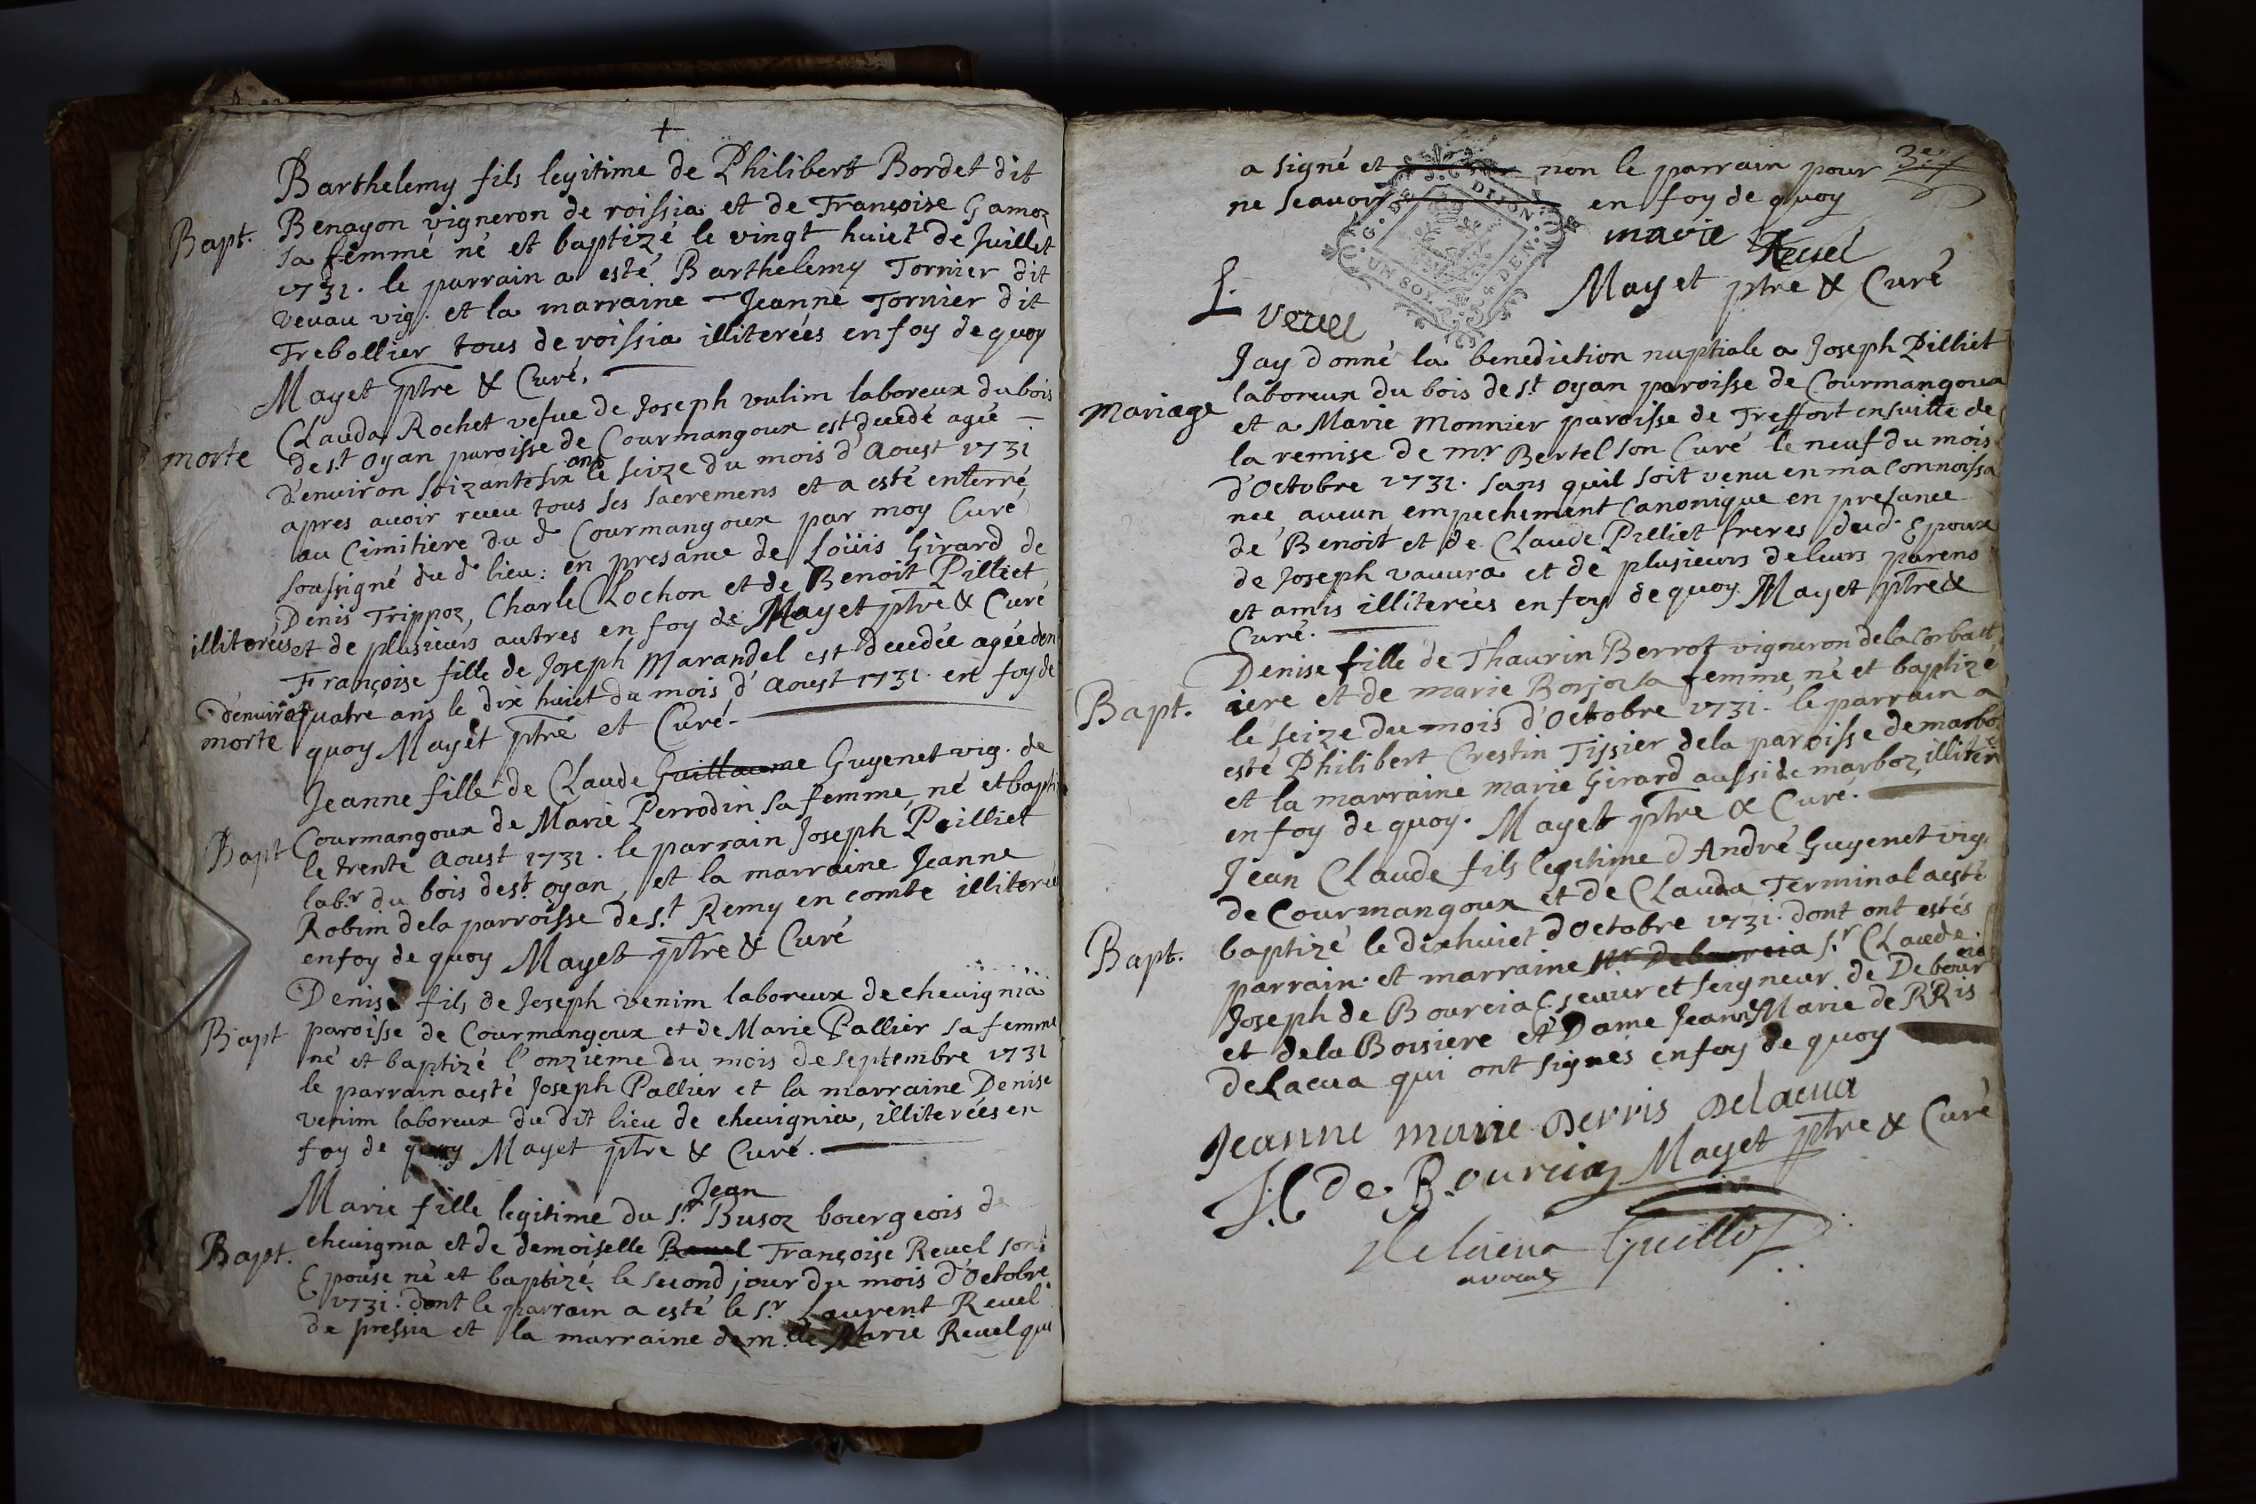 +
Barthelemy fils legitime de Philibert Bordet dit
Bapt. Benayon vigneron de roissia et de Françoise Gamoz
sa femme né et baptizé le vingt huict de Juillet
1731. le parrain a esté Barthelemy Tornier dit
vevau vig. et la marraine Jeanne Tornier dit
Trebollier tous de roissia illiterées en foy de quoy
Mayet ptre & Curé.
Clauda Rochet vefue de Joseph vulim laboreux du bois
morte de st. oyan paroisse de Courmangoux est decedé agée
d'environ soizante six ans le seize du mois d'Aoust 1731
apres avoir receu tous ses sacremens et a esté enterré
au Cimitiere du d. Courmangoux par moy Curé
soussigné du d. lieu: en presance de Loüis Girard de
Denis Trippoz, Charle Clochon et de Benoit Pilliet
illiterées et de plusieurs autres en foy de Mayet ptre & Curé
Françoise fille de Joseph Marandel est decedée agée den
d'environ quatre ans le dix huict du mois d'Aoust 1731. en foy de
morte quoy Mayet ptre et Curé.
Jeanne fille de Claude Guillaume Guyenet vig. de
Courmangoux de Marie Perrodin sa femme, né et bapti
Bapt le trente Aoust 1731. le parrain Joseph Pilliet
labr. du bois de st. oyan, et la marraine Jeanne
Robin dela parroisse de st. Remy en comte illiterée
en foy de quoy Mayet ptre & Curé
Denis fils de Joseph venim laboreux de chevignia
Bapt paroisse de Courmangoux et de Marie Pallier sa femme
né et baptizé l'onzieme du mois de septembre 1731
le parrain a esté Joseph Pallier et la marraine Denise
venim laboreux du dit lieu de chevignia, illiterées en
foy de quoy Mayet ptre & Curé.
Jean
Marie fille legitime du sr. Busoz bourgeois de
Bapt. chevignia et de demoiselle Revel Françoise Revel son
Epouse né et baptizé le second jour du mois d'Octobre
1731. dont le parrain a esté le sr. Laurent Revel
de pressia et la marraine dem.lle Marie Revel qui
a signé et non le parrain pour 3e
ne scavoir en foy de quoy
G. DE DIJON
UN SOL & DEN.
marie Revel
Mayet ptre & Curé
L. Revel
Jay donné la benediction nuptiale a Joseph Pilliet
laboreux du bois de st. oyan paroisse de Courmangoux
mariage et a Marie Monnier paroisse de Treffort ensuitte de
la remise de mr. Bertel son Curé le neuf du mois
d'Octobre 1731. sans quil soit venu en ma Connoissa
nce aucun empechement Canonique en presance
de Benoit et de Claude Pilliet freres dud. Epoux
de Joseph vavura et de plusieurs de leurs parens
et amis illiterées en foy de quoy Mayet ptre &
Curé.
Denise fille de Thaurin Berrot vigneron dela Corbatt
Bapt. iere et de marie Borjoz sa femme, né et baptizé
le seize du mois d'Octobre 1731. le parrain a
esté Philibert Crestin Tissier dela paroisse de marboz
et la marraine marie Girard aussi de marboz, illiter
en foy de quoy. Mayet ptre & Curé.
Jean Claude fils legitime d'André Guyenet vig.
de Courmangoux et de Clauda Terminal a esté
Bapt. baptizé le dixhuict d'Octobre 1731. dont ont estés
parrain et marraine Mr. Debourcia sr. Claude
Joseph de Bourcia Escuier et seigneur de Debour cia
et dela Boisiere et Dame Jeanne Marie de RRis
deLacua qui ont signés en foy de quoy
Jeanne marie Derris Delacua
J.C de Bourcia Mayet ptre & Curé
Delacua Guillot
avocat